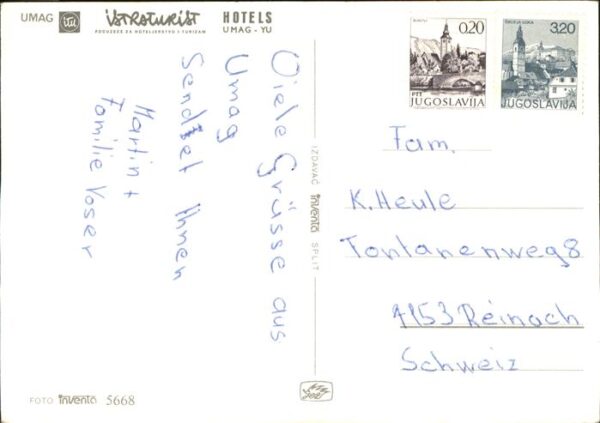 UMAG
istraturist
PODUZEĆE ZA HOTELJERSTVO I TURIZAM
HOTELS
UMAG - YU
0,20
PTT
JUGOSLAVIJA
ŠKOFJA LOKA
3,20
JUGOSLAVIJA
Viele Grüsse aus
Umag
Sendset Ihnen
Martin +
Familie Voser
IZDAVAČ inventa SPLIT
Fam.
K. Heule
Fontanenweg 8
4153 Reinach
Schweiz
FOTO inventa 5668